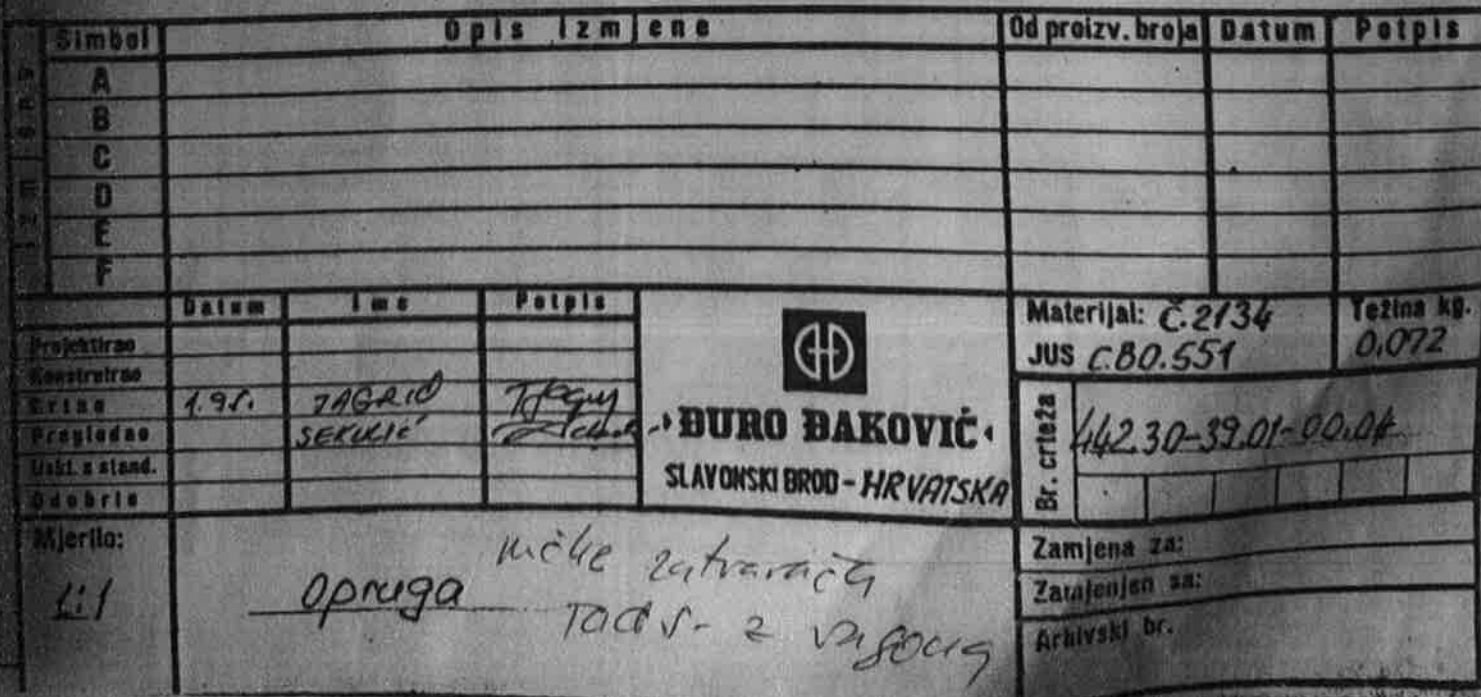 Simbol Opis izmjene Od proizv. broja Datum Potpis
A
B
C
D
E
F
Datum Ime Potpis
Projektirao
Konstruirao
Crtao 1.95. JAGRIĆ
Pregledao SEKULIĆ
Uskl. s stand.
Odobrio
ĐURO ĐAKOVIĆ
SLAVONSKI BROD - HRVATSKA
Materijal: Č.2134
JUS C.B0.551
Težina kg.
0,072
Br. crteža 442.30-39.01-00.04
Mjerilo:
1:1
Opruga
Zamjena za:
Zamjenjen sa:
Arhivski br.